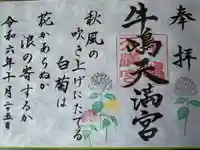 奉拝
牛嶋天満宮
秋風の
吹き上げにたてる
白菊は
花かあらぬか
浪の寄するか
令和六年十月二十五日